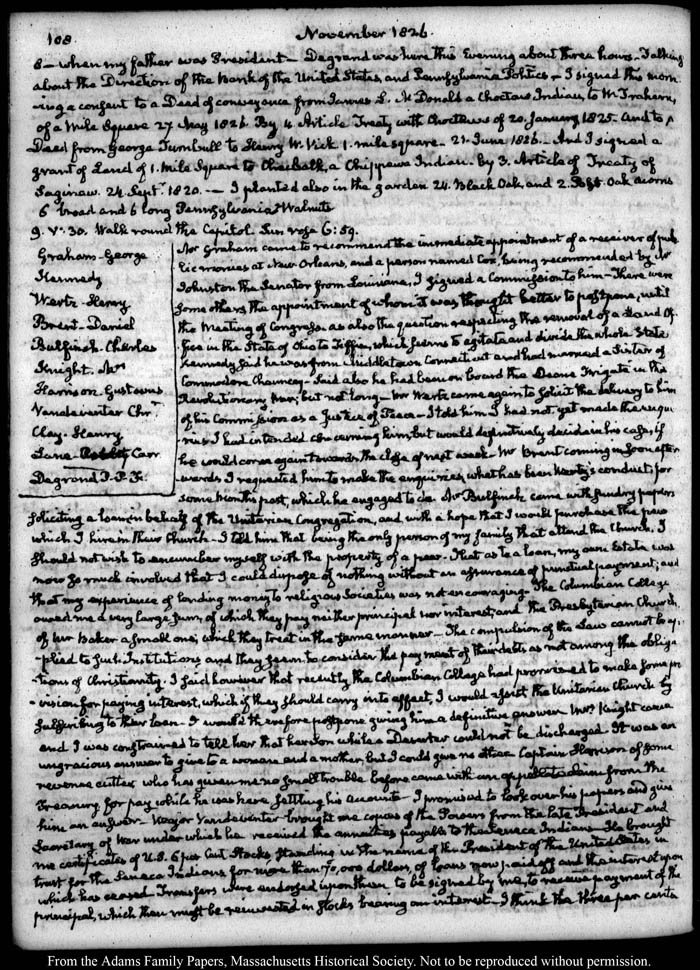 108
November 1826.
8— when my father was President— Degrand was here this Evening about three hours. Talking
about the Direction of the Bank of the United States, and Pennsylvania Politics— I signed this morn-
ing a consent to a Deed of conveyance from James L. McDonald a Choctaw Indian, to W. Trahern,
of a Mile Square 27 May 1826. By 4. Article Treaty with Choctaws of 20. January 1825. And to a
Deed from George Turnbull to Henry W. Vick 1. mile square— 21. June 1826.— And I signed a
grant of Land of 1. Mile Square to a Chippewa Indian. by 3. Article of Treaty of
Saginaw. 24. Septr. 1820.— I planted also in the garden 24. Black Oak, and 2. Oak acorns
6 broad and 6 long Pennsylvania Walnuts
9. V: 30. Walk round the Capitol. Sun rose 6:59.
Graham- George
Kennedy
Wertz- Henry
Brent- Daniel
Bulfinch. Charles
Knight. Mrs
Harrison. Gustavus
Vandeventer Chr.
Clay. Henry
Lane Carr
Degrand P. P. F.
Mr Graham came to recommend the immediate appointment of a receiver of pub-
lic monies at New Orleans, and a person named Cox, being recommended by Mr
Johnston the Senator from Louisiana, I signed a Commission to him— There were
some others the appointment of whom it was thought better to postpone, until
the Meeting of Congress. as also the question respecting the removal of a Land Of-
fice in the State of Ohio to Tiffin, which seems to agitate and divide the whole State
Kennedy said he was from Middletown Connecticut and had married a Sister of
Commodore Chauncey— Said also he had been on board the Deane frigate in the
Revolutionary War; but not long— Mr Wertz came again to solicit the delivery to him
of his Commission as a Justice of Peace— I told him I had not yet made the enqui-
ries I had intended concerning him, but would definitively decide in his case, if
he would come again towards the close of next week. Mr Brent coming in soon after-
wards I requested him to make the enquiries, what has been Wertz's conduct, for
some Months past, which he engaged to do. Mr Bulfinch came with sundry papers
soliciting a loan in behalf of the Unitarian Congregation, and with a hope that I would purchase the pew
which I hire in their Church— I told him that being the only person of my family that attend the Church, I
should not wish to encumber myself with the property of a pew. That as to a loan, my own Estate was
now so much involved that I could dispose of nothing without an assurance of punctual payment; and
that my experience of lending money to religious Societies was not encouraging— The Columbian College
owed me a very large sum, of which they pay neither principal nor interest; and the Presbyterian Church
of Mr Baker a small one; which they treat in the same manner— The compulsion of the Law cannot be ap-
plied to such Institutions and they seem to consider the payment of their debts as not among the obliga-
tions of Christianity. I said however that recently the Columbian College had promised to make some pro-
vision for paying interest, which if they should carry into effect, I would assist the Unitarian Church by
subscribing to their loan— I would therefore postpone giving him a definitive answer— Mrs Knight came
and I was constrained to tell her that her Son while a Deserter could not be discharged. It was an
ungracious answer to give to a woman and a mother, but I could give no other Captain Harrison of some
revenue cutter who has given me no small trouble before came with an appellate claim from the
Treasury for pay while he was here settling his accounts— I promised to look over his papers and give
him an answer— Major Vandeventer brought me copies of the Powers from the late President and
Secretary of War under which he received the annuities payable to the Seneca Indians— He brought
me certificates of U.S. 6 per Cent Stocks, standing in the name of the President of the United States in
trust for the Seneca Indians for more than 70,000 dollars, of loans now paid off and the interest upon
which has ceased. Transfers were endorsed upon them to be signed by me, to receive payment of the
principal, which then might be reinvested in stocks bearing an interest— I think the three per cents
From the Adams Family Papers, Massachusetts Historical Society. Not to be reproduced without permission.